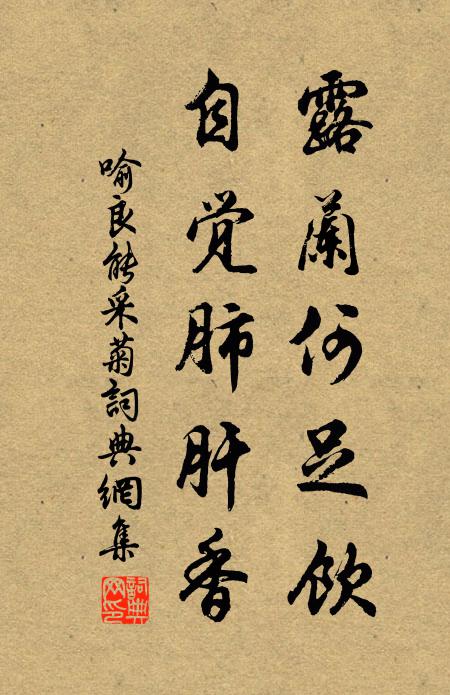 露蘭何足飲
自觉肺肝香
喻良能采菊詞典網集
詞典网印